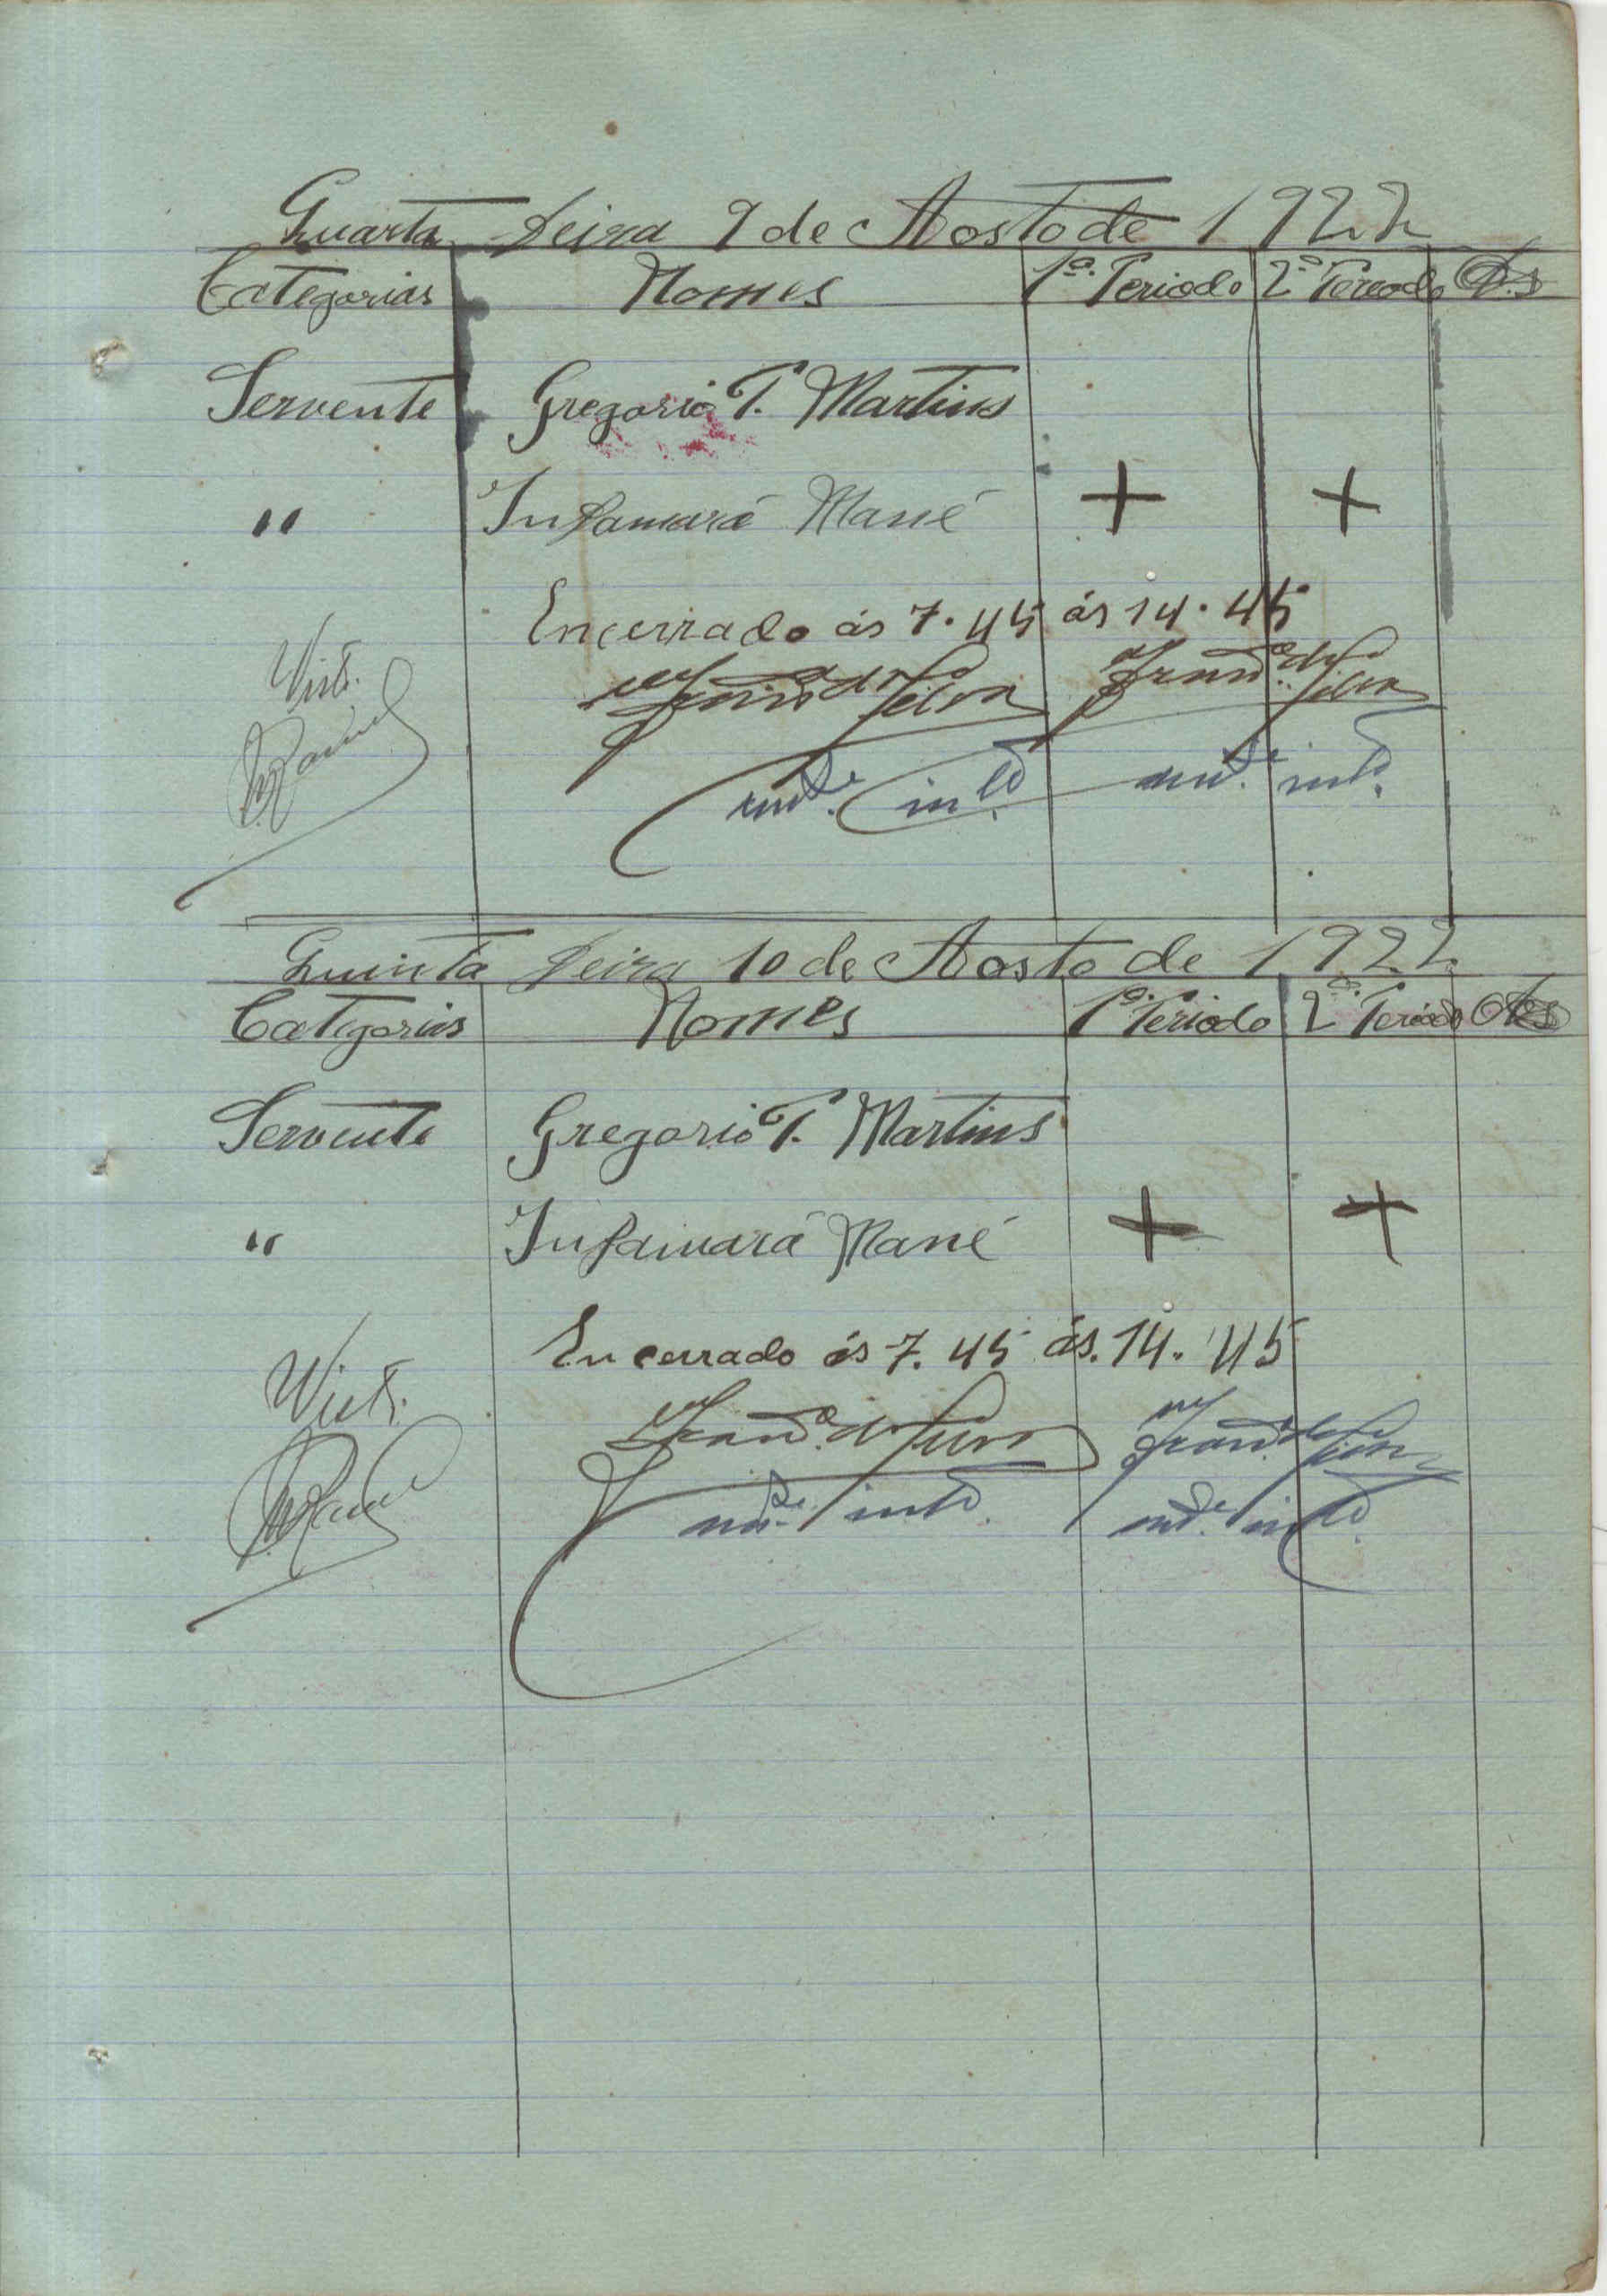 Quarta feira 9 de Aosto de 1922
Categorias Nomes 1º Periodo 2º Periodo Obs
Servente Gregorio T. Martins
" Infamará Mané + +
Encerrado ás 7.45 ás 14.45
Visto.
Quinta feira 10 de Aosto de 1922
Categorias Nomes 1º Periodo 2º Periodo Obs
Servente Gregorio T. Martins
" Infamará Mané + +
Encerrado ás 7.45 ás. 14.45
Visto.